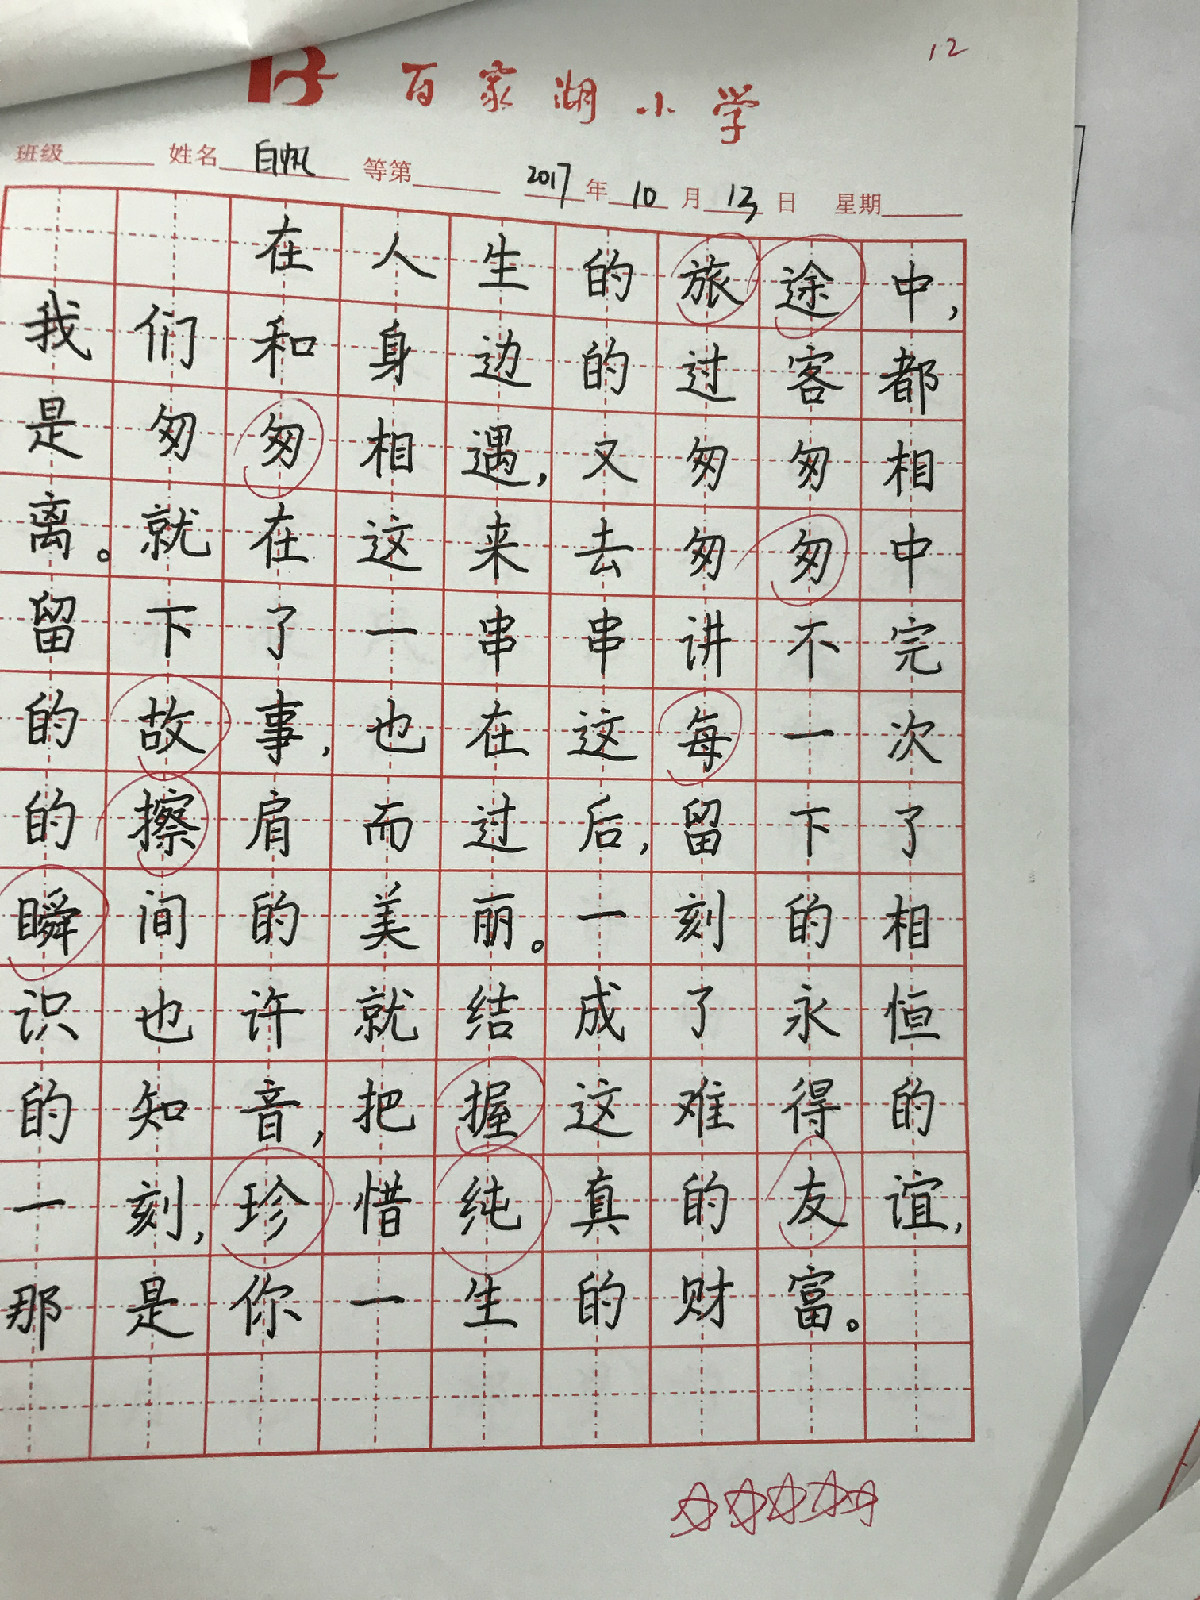 12
百家湖小学
班级 姓名 白帆 等第 2017 年 10 月 13 日 星期
在人生的旅途中,
我们和身边的过客都
是匆匆相遇,又匆匆相
离。就在这来去匆匆中
留下了一串串讲不完
的故事,也在这每一次
的擦肩而过后,留下了
瞬间的美丽。一刻的相
识也许就结成了永恒
的知音,把握这难得的
一刻,珍惜纯真的友谊,
那是你一生的财富。